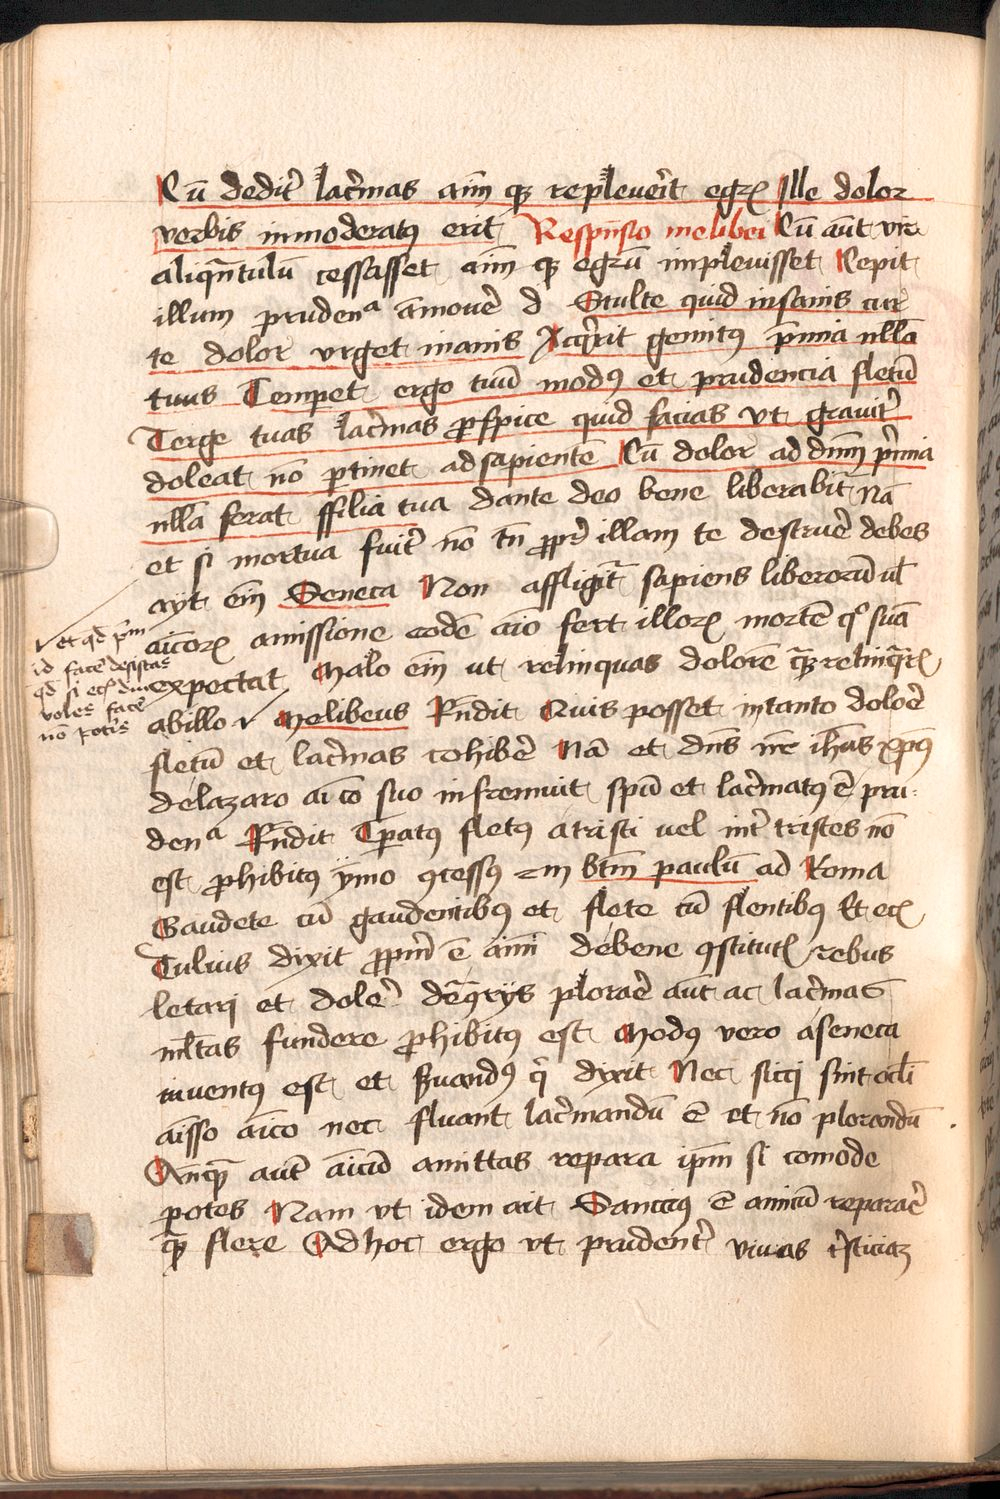 Cū dediť lacr̄mas aīm qȝ repleverīt egrꝫ Ille dolor
verbis inmoderatꝰ erit Respn̄sio melibei Cū aūt vir
aliqn̄tulū cessasset aīm qȝ egrū implevisset Cepit
illum prudenᵃ āmovē d Stulte quid insanis cur
te dolor urget inanis Acqr̄it gemitꝰ p̄mia nllā
tuus Temꝑet ergo tuū modꝰ et prudencia fletū
Terge tuas lacr̄mas ꝓspice quid facias vt graviť
doleat nō ꝑtinet ad sapientē Cū dolor ad dn̄m p̄mia
nllā ferat ffilia tua dante deo bene liberabiť Nā
et si mortua fuiť nō tn̄ ꝓpť illam te destruē debes
ayt em̄ Seneca Non affligiť sapiens liberorū ul̄
aīcorꝫ amissione eodē aīo fert illorꝫ mortē qͦ suā
expectat Malo em̄ ut relinquas dolorē qȝ relinqr̄ꝫ
ab illo Melibeus Rn̄dit Quis posset in tanto dolorē
fletū et lacr̄mas cohibē Nā et dn̄s nr̄ ih̄us xp̄ꝰ
de lazaro aīco suo infremuit spū et lacr̄matꝰ ē pru-
denᵃ Rn̄dit Tꝑatꝰ fletꝰ a tristi vel int̄ tristes nō
est ꝓhibitꝰ ymo ꝯcessꝰ 2m btm̄ paulū ad Roma
Gaudete cū gaudentibꝰ et flete cū flentibꝰ Et ecꝫ
Tulius dixit ꝓpm̄ ē aīmi de bene ꝯstitutꝫ rebus
letari et doleꝛ̄ de ꝯtr̄ijs plorarē aūt ac lacr̄mas
ml̄tas fundere ꝓhibitꝰ est Modꝰ vero a seneca
inventꝰ est et ẞvandꝰ qͥ dixit Nec sicci sint ocl̄i
aīsso aīco nec fluant lacr̄mandū ē et nō plorandū
Qn̄qȝ aūt aīcū amittas repara ip̄m si comode
potes Nam vt idem ait Sanccius ē amicū reparaē
qȝ flere Ad hoc ergo vt prudenť vivas tr̄sticiaꝫ
et qd̄ p̄m
id facē desistas
qd̄ si ecꝫ diu
voles facē
nō potīs